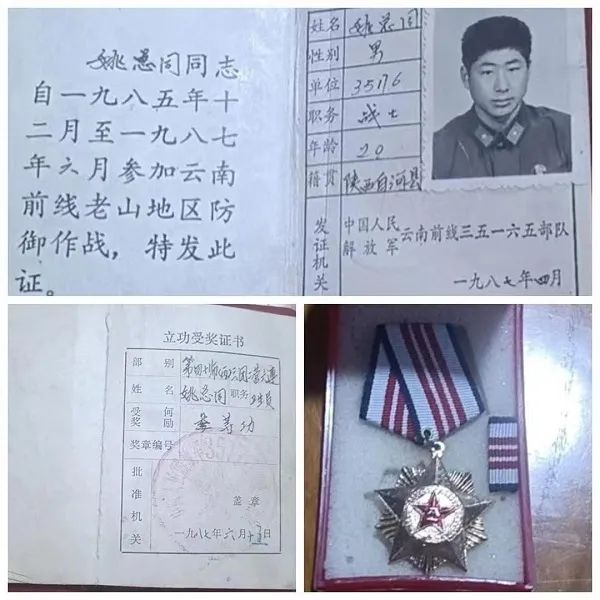 姚同志
自一九八五年十
二月至一九八七
年六月参加云南
前线老山地区防
御作战，特发此
证。
姓名 姚
性别 男
单位 35176
职务 战士
年龄 20
籍贯 陕西白河县
发证机关 中国人民解放军云南前线三五一六五部队
一九八七年四月
立功受奖证书
部别
姓名 姚 职务
受何奖励 叁等功
奖章编号
批准机关 盖章
一九八七年六月十五日